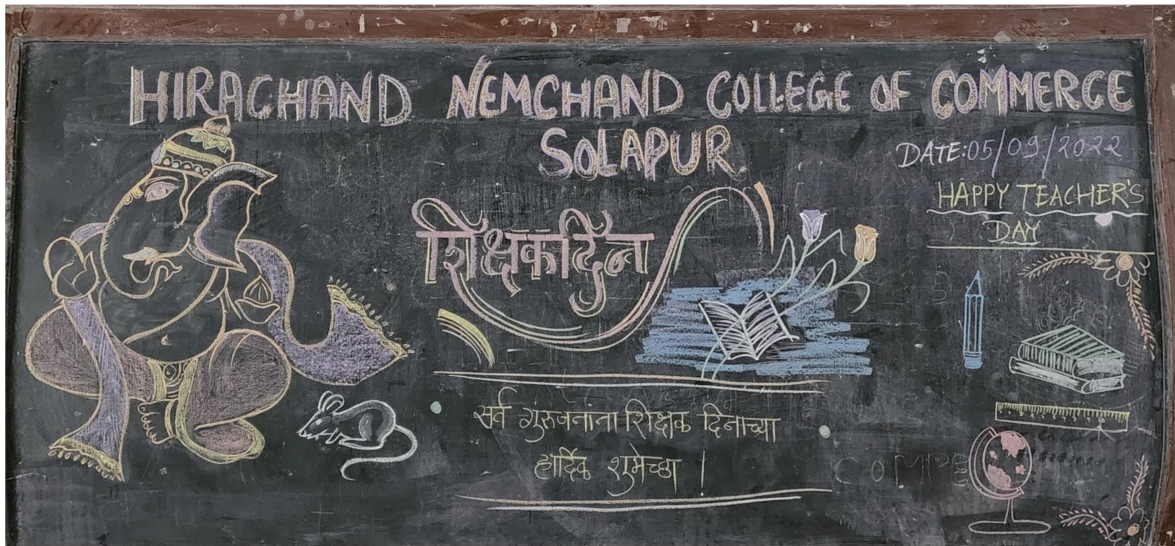 HIRACHAND NEMCHAND COLLEGE OF COMMERCE
SOLAPUR
DATE:05/09/2022
HAPPY TEACHER'S
DAY
शिक्षकदिन
सर्व गुरुजनांना शिक्षक दिनाच्या
हार्दिक शुभेच्छा !